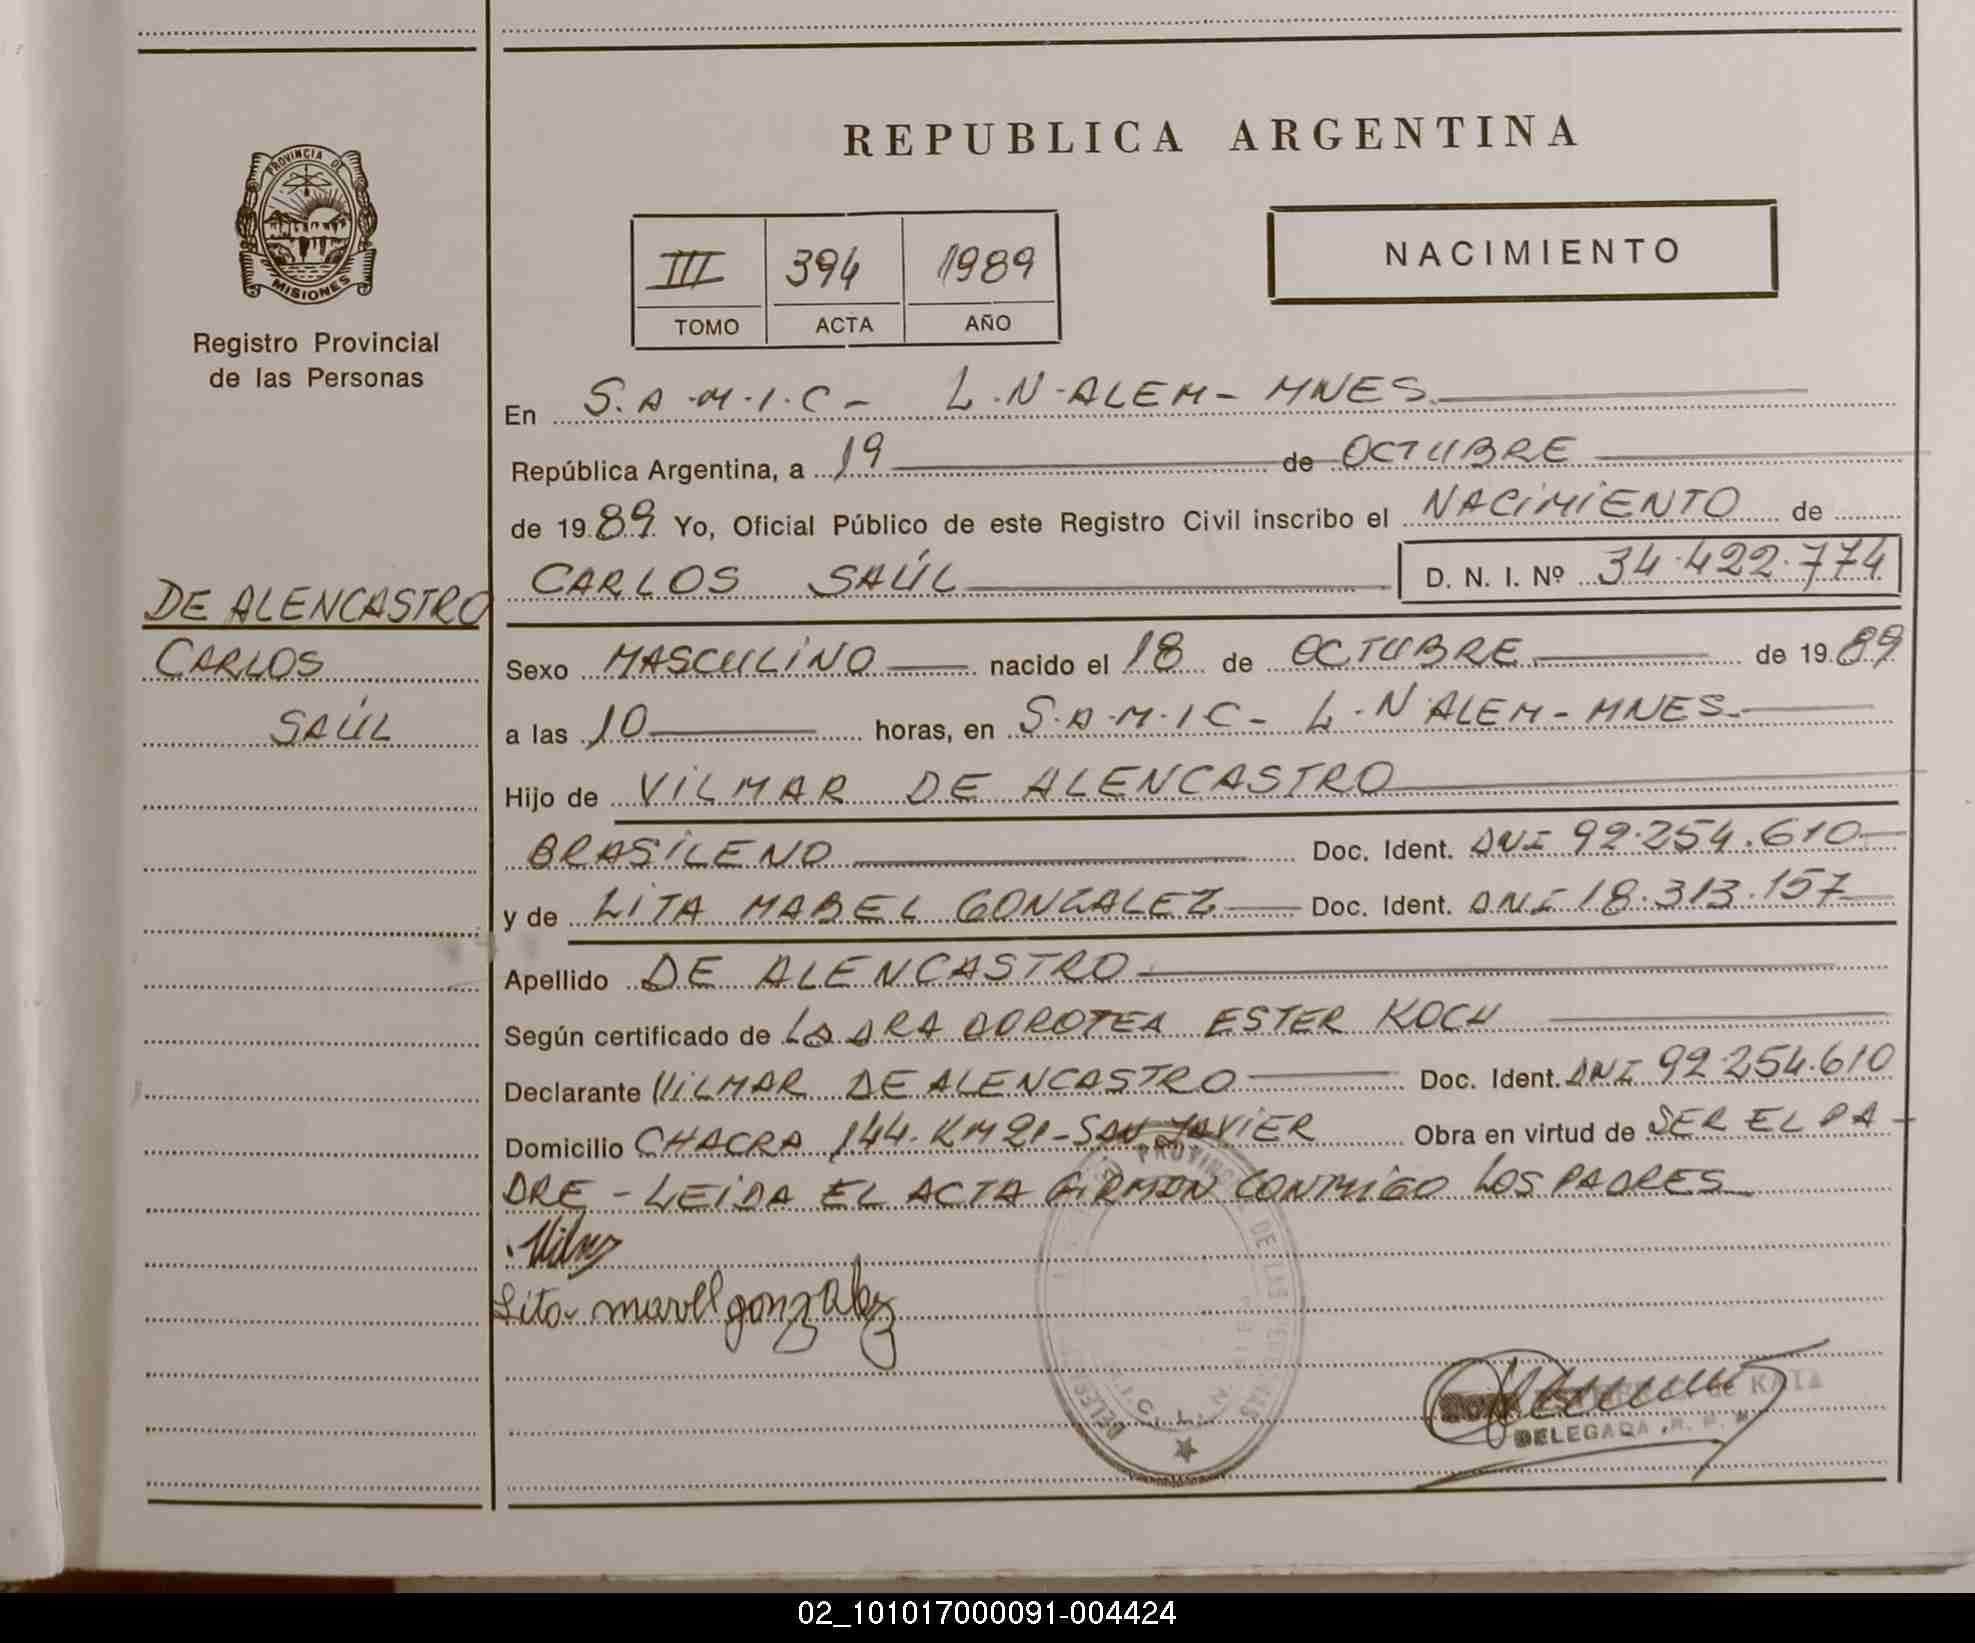 REPUBLICA ARGENTINA
PROVINCIA DE
MISIONES
Registro Provincial
de las Personas
III 394 1989
TOMO ACTA AÑO
NACIMIENTO
En S.A.M.I.C- L.N-ALEM- MNES.
República Argentina, a 19 de OCTUBRE
de 1989. Yo, Oficial Público de este Registro Civil inscribo el NACIMIENTO de
CARLOS SAÚL D. N. I. Nº 34.422.774
DE ALENCASTRO
CARLOS
SAÚL
Sexo MASCULINO nacido el 18 de OCTUBRE de 1989
a las 10 horas, en S.A.M.I C- L.N ALEM- MNES-
Hijo de VILMAR DE ALENCASTRO
BRASILENO Doc. Ident. DNI 92.254.610
y de LITA MABEL GONZALEZ Doc. Ident. DNI 18.313.157
Apellido DE ALENCASTRO
Según certificado de LA DRA DOROTEA ESTER KOCH
Declarante VILMAR DE ALENCASTRO Doc. Ident. DNI 92.254.610
Domicilio CHACRA 144. KM 21-SAN JAVIER Obra en virtud de SER EL PA-
DRE - LEIDA EL ACTA FIRMAN CONMIGO LOS PADRES
Vilmar
Lita mavel gonzalez
PROVINCIAL DE LAS PERSONAS
DELEGADA
02_101017000091-004424